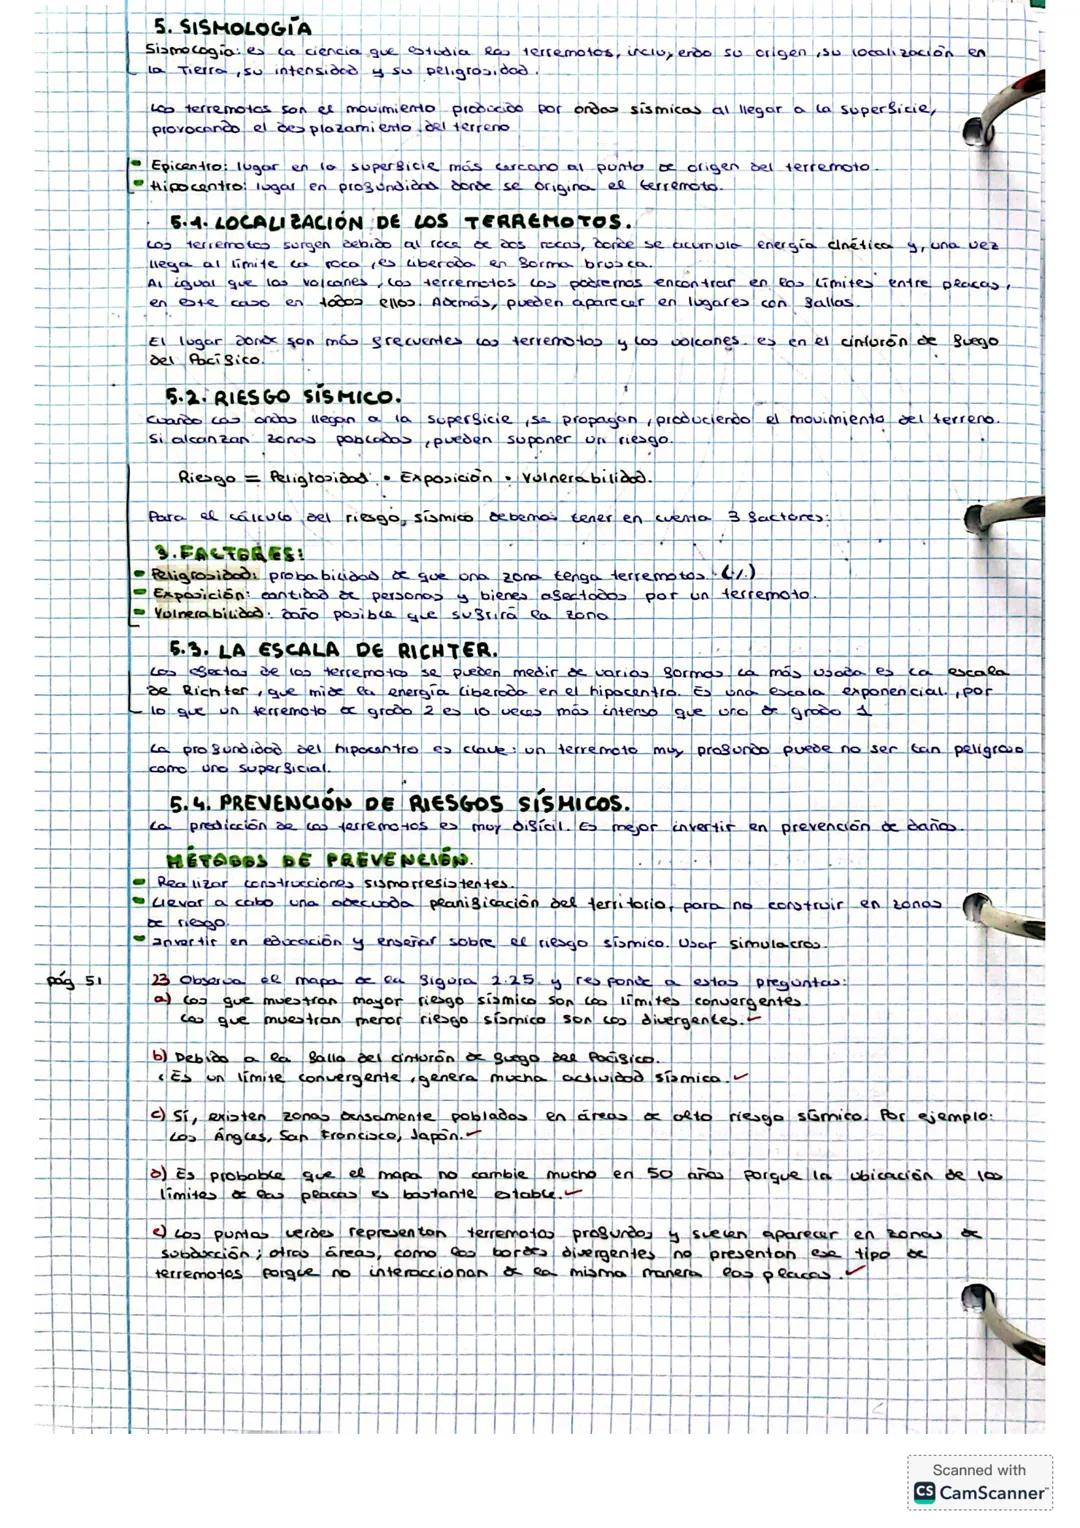 5. SISMOLOGÍA
Sismología: es la ciencia que estudia los terremotos, incluyendo su origen, su localización en
la Tierra, su intensidad y su peligrosidad.
Los terremotos son el movimiento producido por ondas sísmicas al llegar a la superficie,
provocando el desplazamiento del terreno
Epicentro: lugar en la superficie más cercano al punto de origen del terremoto.
Hipocentro: lugar en profundidad donde se origina el terremoto.
5.1. LOCALIZACIÓN DE LOS TERREMOTOS.
Los terremotos surgen debido al roce de dos rocas, donde se acumula energía cinética y, una vez
llega al límite la roca, es liberada en forma brusca.
Al igual que los volcanes, los terremotos los podremos encontrar en los límites entre placas,
en este caso en todos ellos. Además, pueden aparecer en lugares con fallas.
El lugar donde son más frecuentes los terremotos y los volcanes es en el cinturón de fuego
del Pacífico.
5.2. RIESGO SÍSMICO.
Cuando las ondas llegan a la superficie, se propagan, produciendo el movimiento del terreno.
Si alcanzan zonas pobladas, pueden suponer un riesgo.
Riesgo = Peligrosidad · Exposición · Vulnerabilidad.
Para el cálculo del riesgo sísmico debemos tener en cuenta 3 factores:
3. FACTORES:
Peligrosidad: probabilidad de que una zona tenga terremotos. (%)
Exposición: cantidad de personas y bienes afectados por un terremoto.
Vulnerabilidad: daño posible que sufrirá la zona.
5.3. LA ESCALA DE RICHTER.
Los efectos de los terremoto se pueden medir de varias formas la más usada es la escala
de Richter, que mide la energía liberada en el hipocentro. Es una escala exponencial, por
lo que un terremoto de grado 2 es 10 veces más intenso que uno de grado 1
La profundidad del hipocentro es clave: un terremoto muy profundo puede no ser tan peligroso
como uno superficial.
5.4. PREVENCIÓN DE RIESGOS SÍSMICOS.
La predicción de los terremotos es muy difícil. Es mejor invertir en prevención de daños.
MÉTODOS DE PREVENCIÓN.
Realizar construcciones sismorresistentes.
Llevar a cabo una adecuada planificación del territorio, para no construir en zonas
de riesgo.
Invertir en educación y enseñar sobre el riesgo sísmico. Usar simulacros.
pág 51 23 Observa el mapa de la figura 2.25 y responde a estas preguntas:
a) Los que muestran mayor riesgo sísmico son los límites convergentes.
Los que muestran menor riesgo sísmico son los divergentes.
b) Debido a la falla del cinturón de fuego del Pacífico.
Es un límite convergente, genera mucha actividad sísmica.
c) Sí, existen zonas densamente pobladas en áreas de alto riesgo sísmico. Por ejemplo:
Los Ángles, San Francisco, Japón.
d) Es probable que el mapa no cambie mucho en 50 años porque la ubicación de los
límites de las placas es bastante estable.
e) Los puntos verdes representan terremotos profundos y suelen aparecer en zonas de
subducción; otras áreas, como los bordes divergentes no presentan ese tipo de
terremotos porque no interaccionan de la misma manera las placas.
Scanned with
CS CamScanner